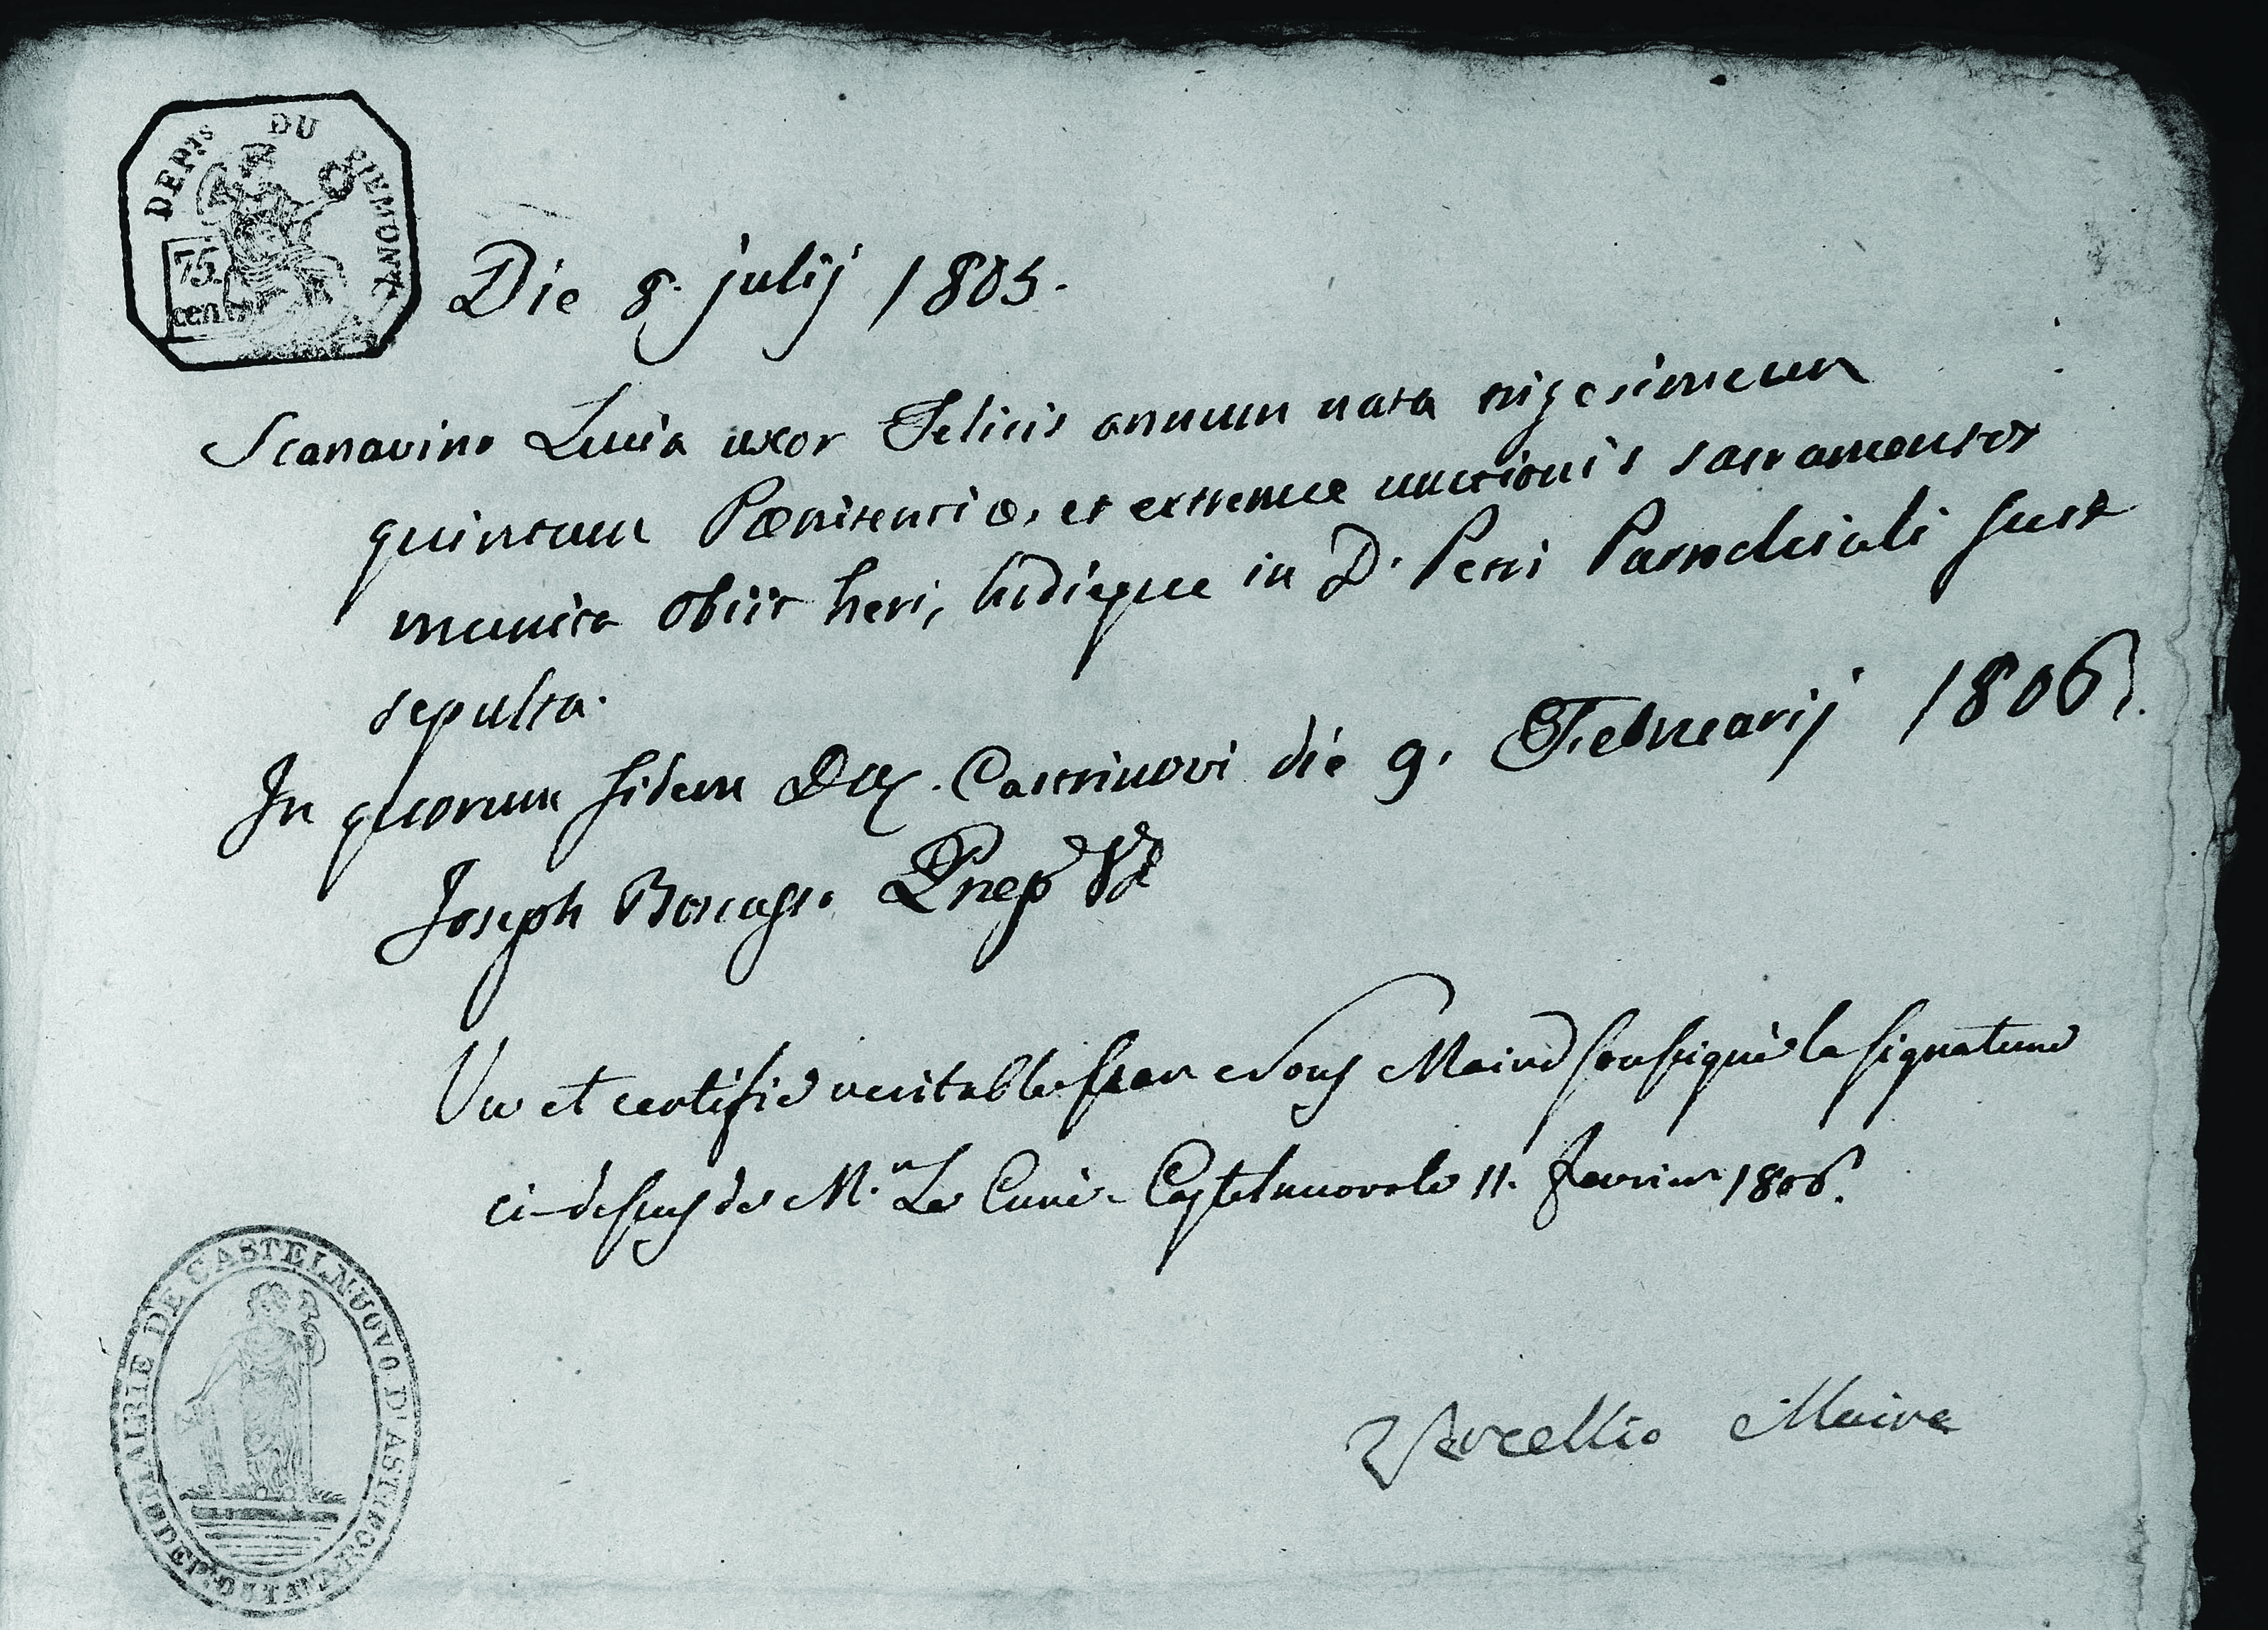 DEPTS DU PIEMONT
75
cent
Die 8. julij 1805.
Scanavino Lucia uxor Felicis annum nata trigesimum
quintum Pœnitentiæ, et extremæ unctionis sacramentis
munita obiit heri, hodieque in D. Petri Parochiali fuit
sepulta.
In quorum fidem Castrinovi die 9. Februarij 1806.
Joseph Præp
Vu et certifié veritable par Nous Maire soussigné la signature
ci-dessus de M.r Le Curé. Castelnuovo le 11. fevrier 1806.
Vercellio Maire
MAIRIE DE CASTELNUOVO D'ASTI